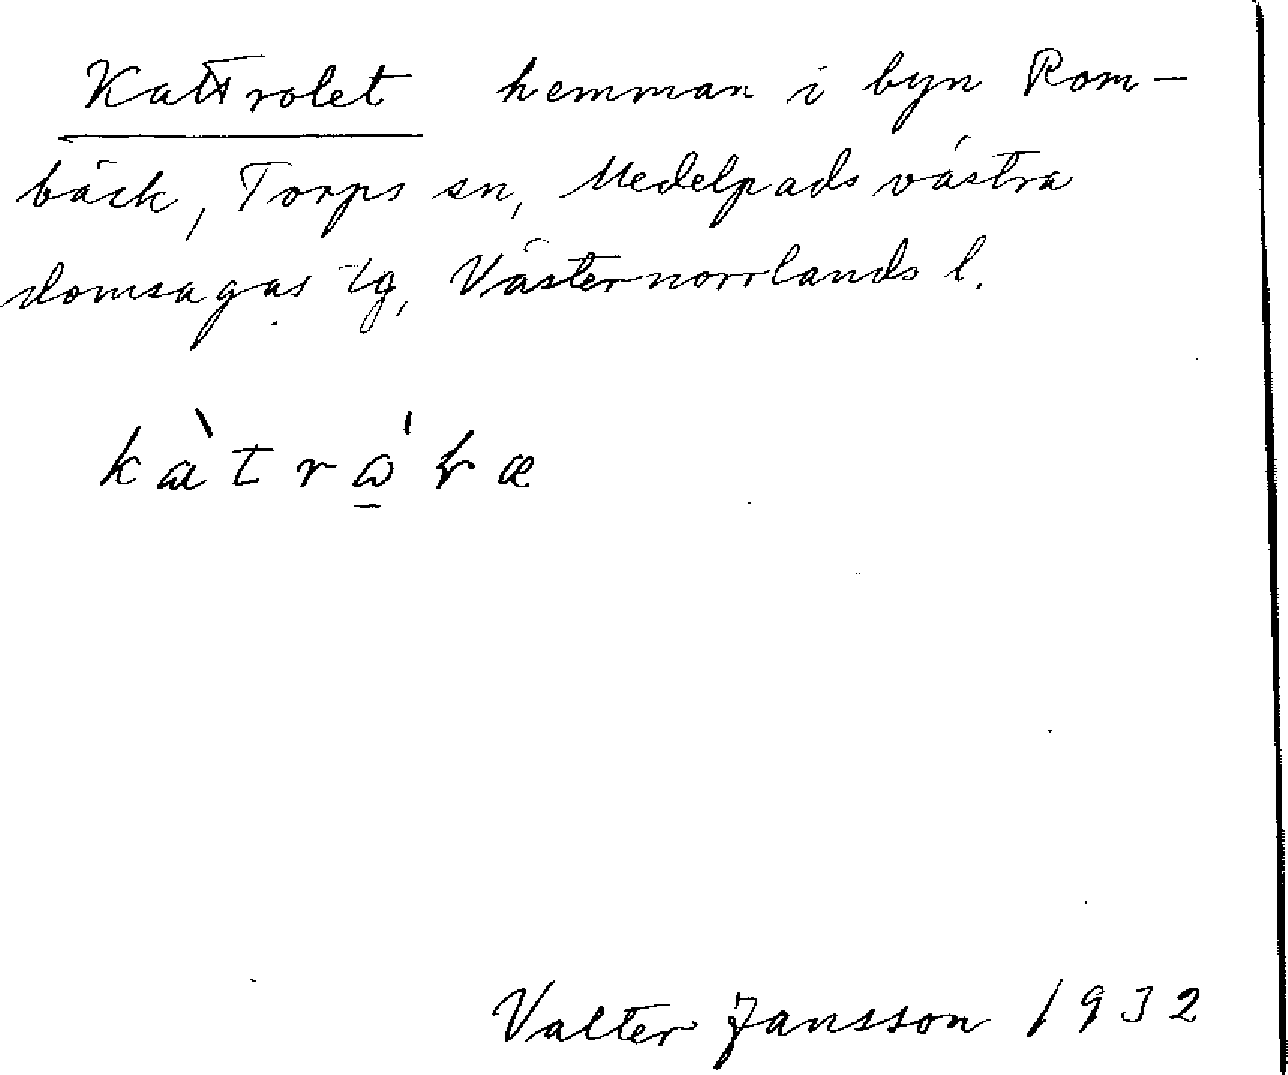 Kattrolet hemman i byn Rom-
bäck, Torps sn, Medelpads västra
domsagas tg, Västernorrlands l.
Valter Jansson 1932